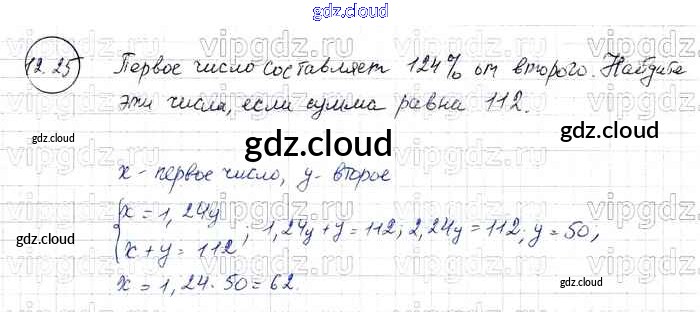 gdz.cloud
12.25 Первое число составляет 124% от второго. Найдите
эти числа, если сумма равна 112.
gdz.cloud
gdz.cloud
gdz.cloud
x - первое число, y - второе
{ x = 1,24y
x + y = 112 ; 1,24y + y = 112; 2,24y = 112; y = 50,
x = 1,24 · 50 = 62.
gdz.cloud
gdz.cloud
gdz.cloud